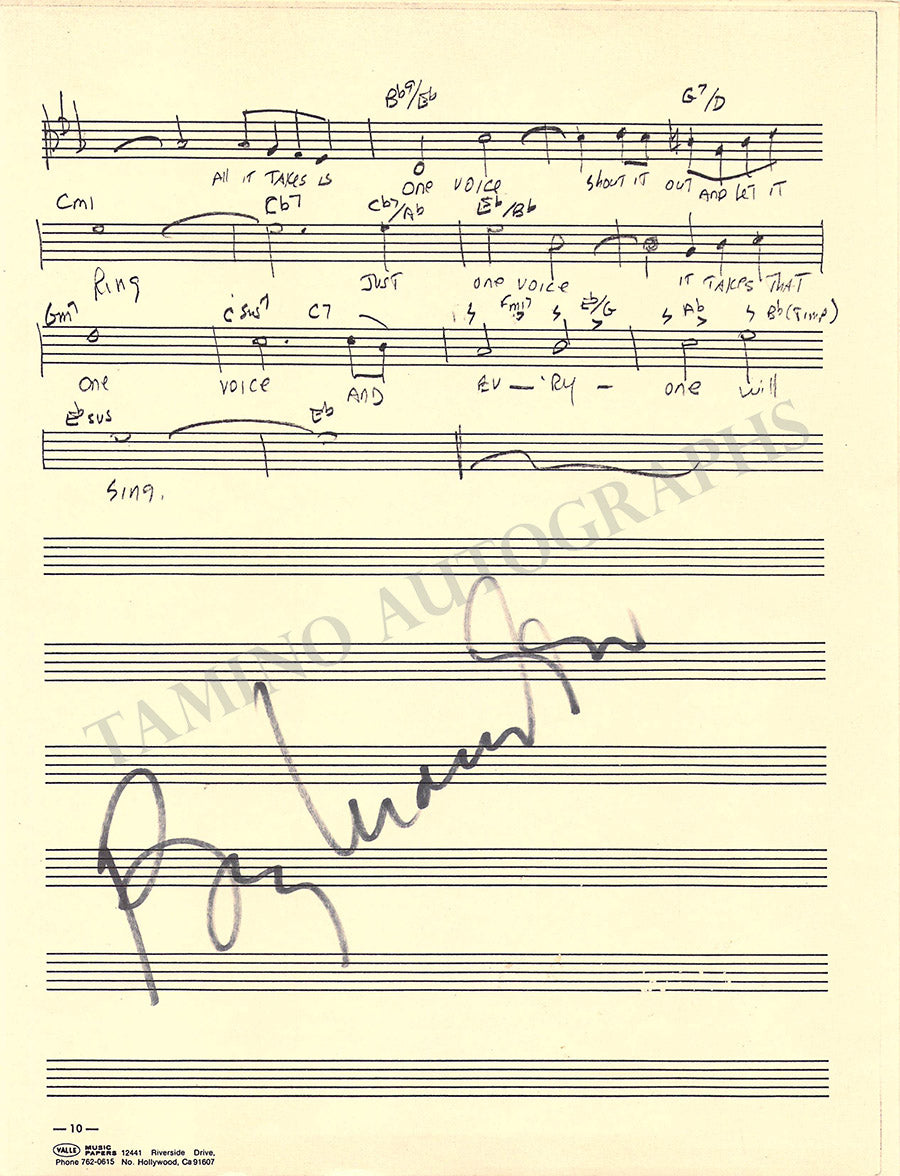 Bb9/Eb G7/D
All iT TAKes is one voice shouT iT ouT AND LeT iT
Cm1 Cb7 Cb7/Ab Eb/Bb
Ring JusT one voice iT TAKes THAT
Gm7 Csus7 C7 Fm17 Eb/G Ab Bb(Timp)
one voice AND Ev — 'Ry — one will
Ebsus Eb
Sing.
TAMINO AUTOGRAPHS
Barry Manilow
— 10 —
VALLE MUSIC PAPERS 12441 Riverside Drive,
Phone 762-0615 No. Hollywood, Ca 91607